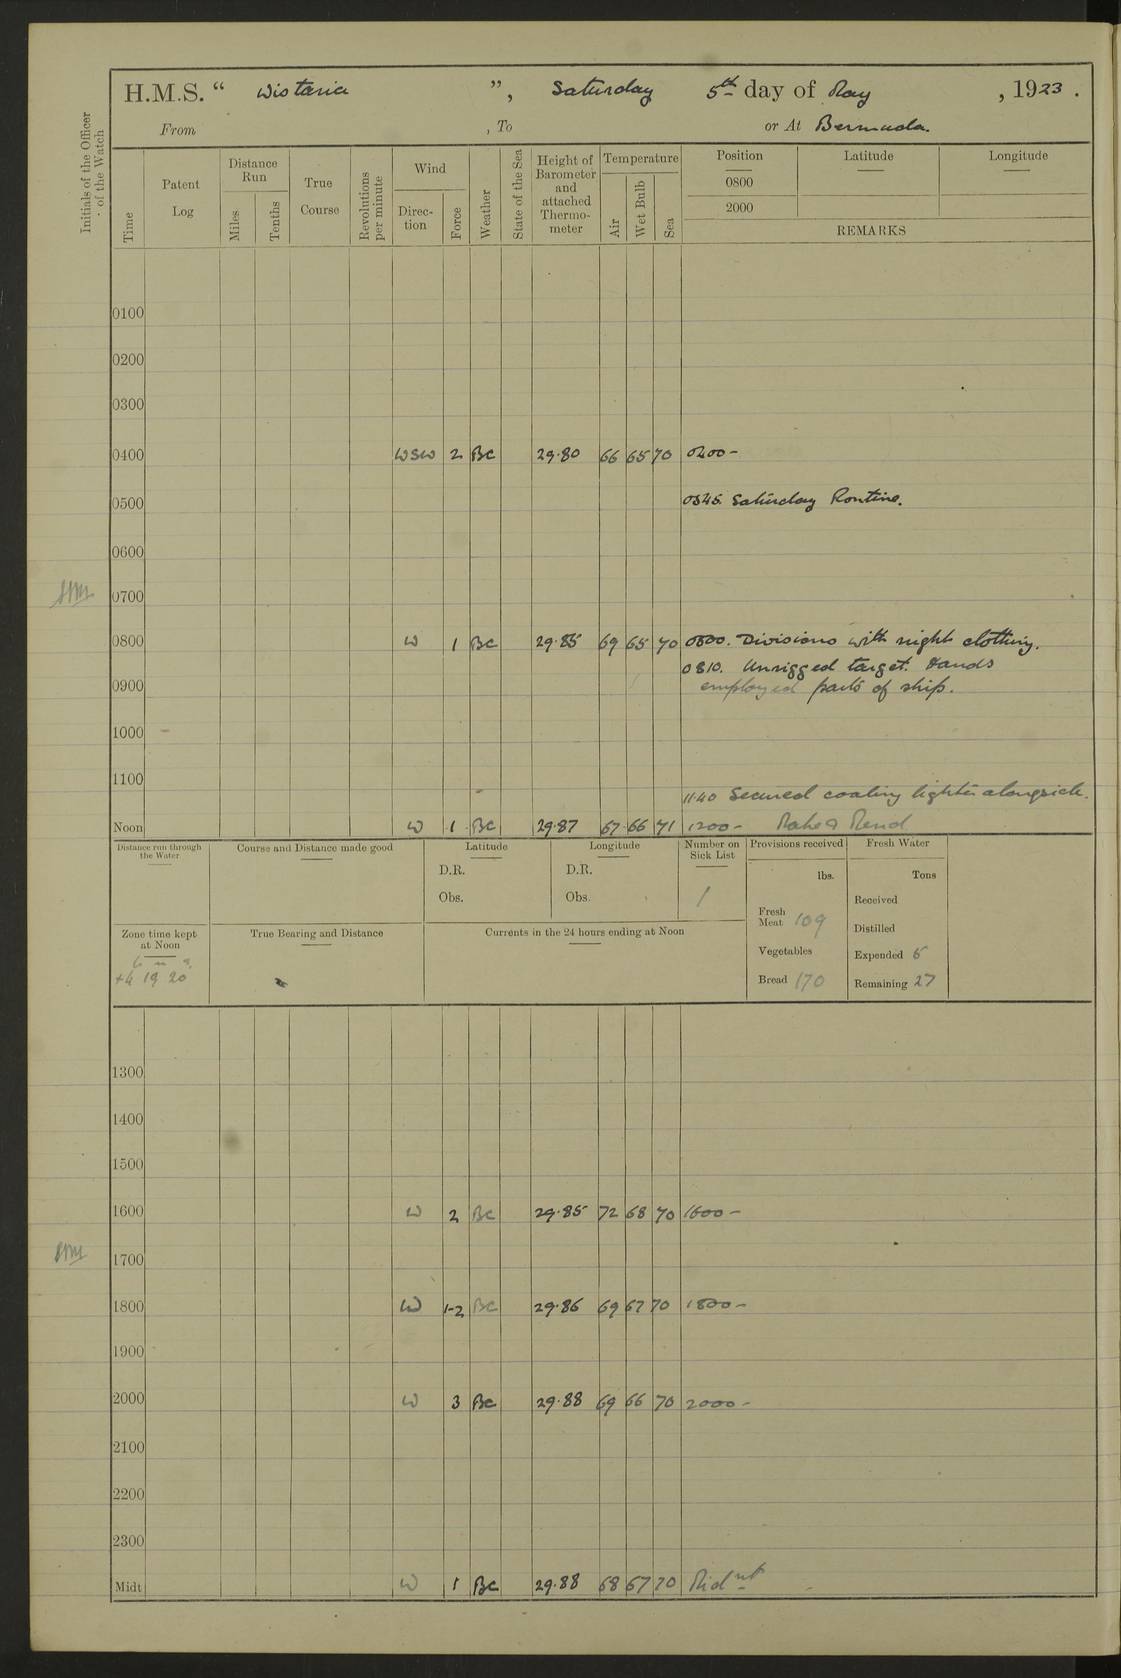 H.M.S. “ Wistaria ”, Saturday 5th day of May , 1923 .
From , To or At Bermuda.
Initials of the Officer of the Watch
Time
Patent Log
Distance Run
Miles
Tenths
True Course
Revolutions per minute
Wind
Direc- tion
Force
Weather
State of the Sea
Height of Barometer and attached Thermo- meter
Temperature
Air
Wet Bulb
Sea
Position Latitude Longitude
0800
2000
REMARKS
0100
0200
0300
0400 WSW 2 BC 29.80 66 65 70 0400 -
0500 0545. Saturday Routine.
0600
0700
0800 W 1 BC 29.85 69 65 70 0800. Divisions with night clothing.
0810. Unrigged target. Hands
0900 employed parts of ship.
1000
1100
1140 Secured coaling lighter alongside.
Noon W 1 BC 29.87 67 66 71 1200 - Make & Mend
Distance run through the Water
Course and Distance made good
Latitude
D.R.
Obs.
Longitude
D.R.
Obs.
Number on Sick List
1
Provisions received
lbs.
Fresh Meat 109
Vegetables
Bread 170
Fresh Water
Tons
Received
Distilled
Expended 5
Remaining 27
Zone time kept at Noon
h m s
+4 19 20
True Bearing and Distance
Currents in the 24 hours ending at Noon
1300
1400
1500
1600 W 2 BC 29.85 72 68 70 1600 -
1700
1800 W 1-2 BC 29.86 69 67 70 1800 -
1900
2000 W 3 BC 29.88 69 66 70 2000 -
2100
2200
2300
Midt W 1 BC 29.88 68 67 70 Midnt